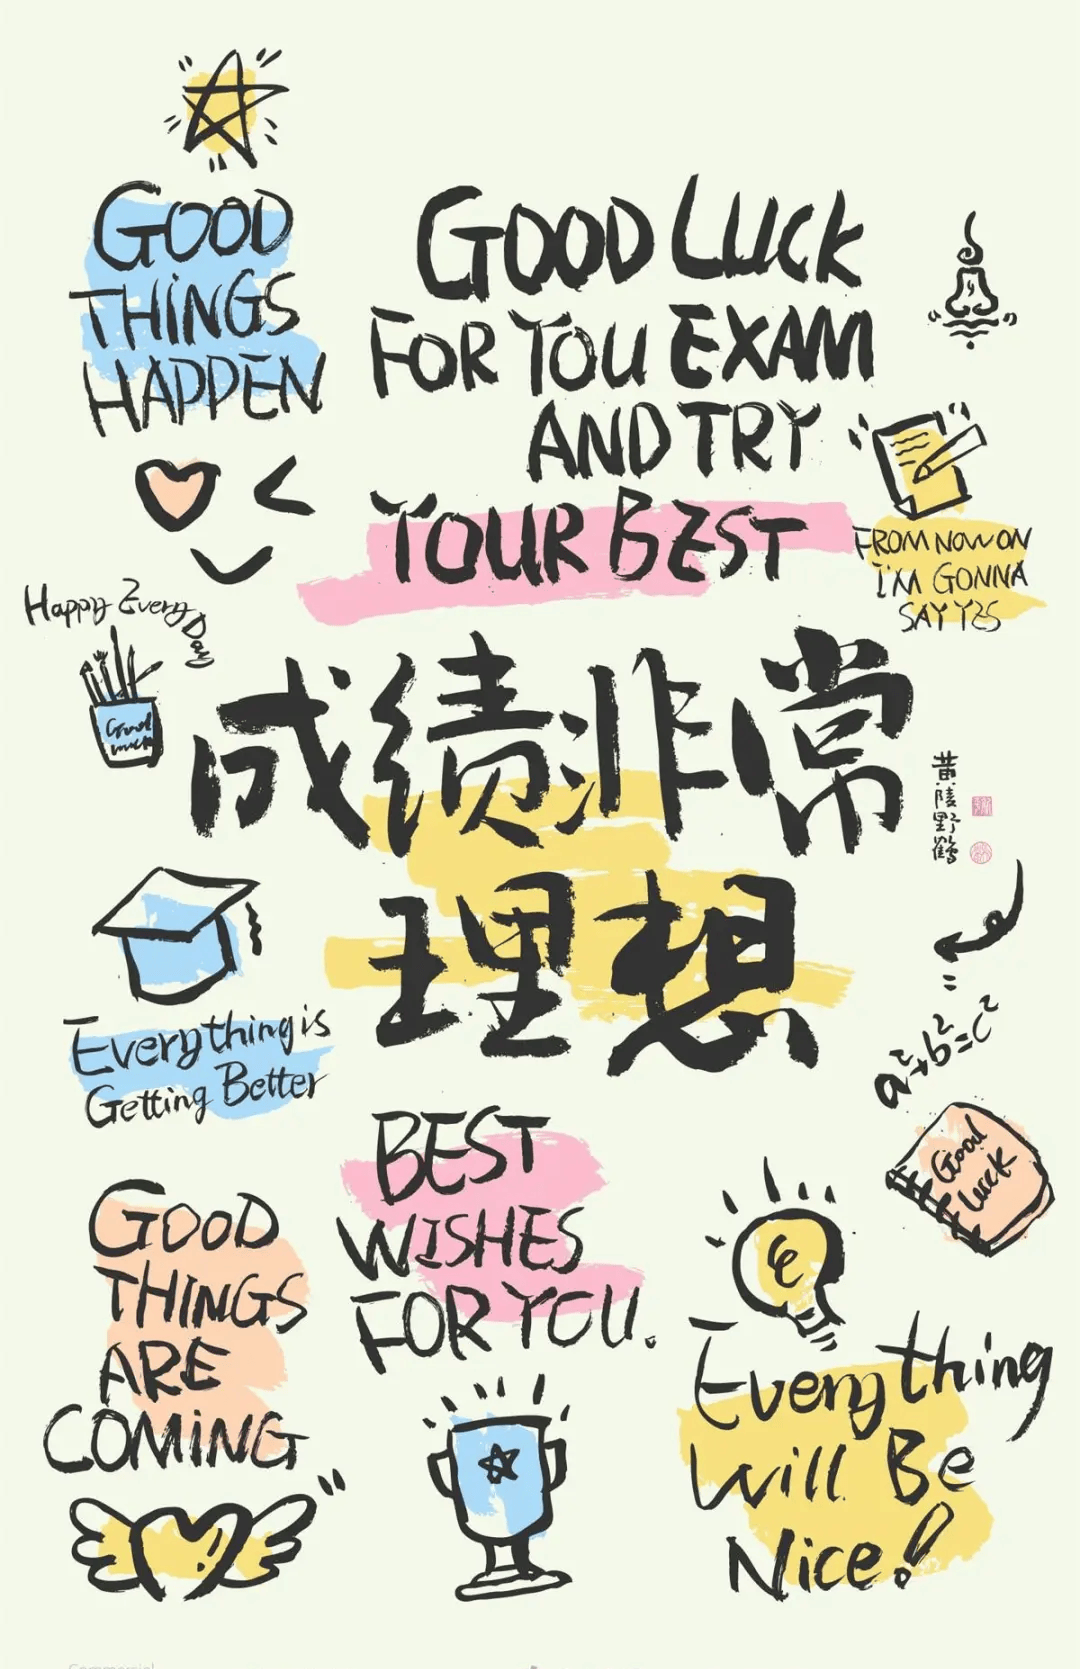 GOOD
THINGS
HAPPEN
GOOD LUCK
FOR YOU EXAM
AND TRY
YOUR BEST
FROM NOW ON
I'M GONNA
SAY YES
Happy Every Day
Good
luck
成绩非常
理想
黄陵野鹤
Everything is
Getting Better
a²+b²=c²
Good
Luck
BEST
WISHES
FOR YOU.
GOOD
THINGS
ARE
COMING
Everything
Will Be
Nice!